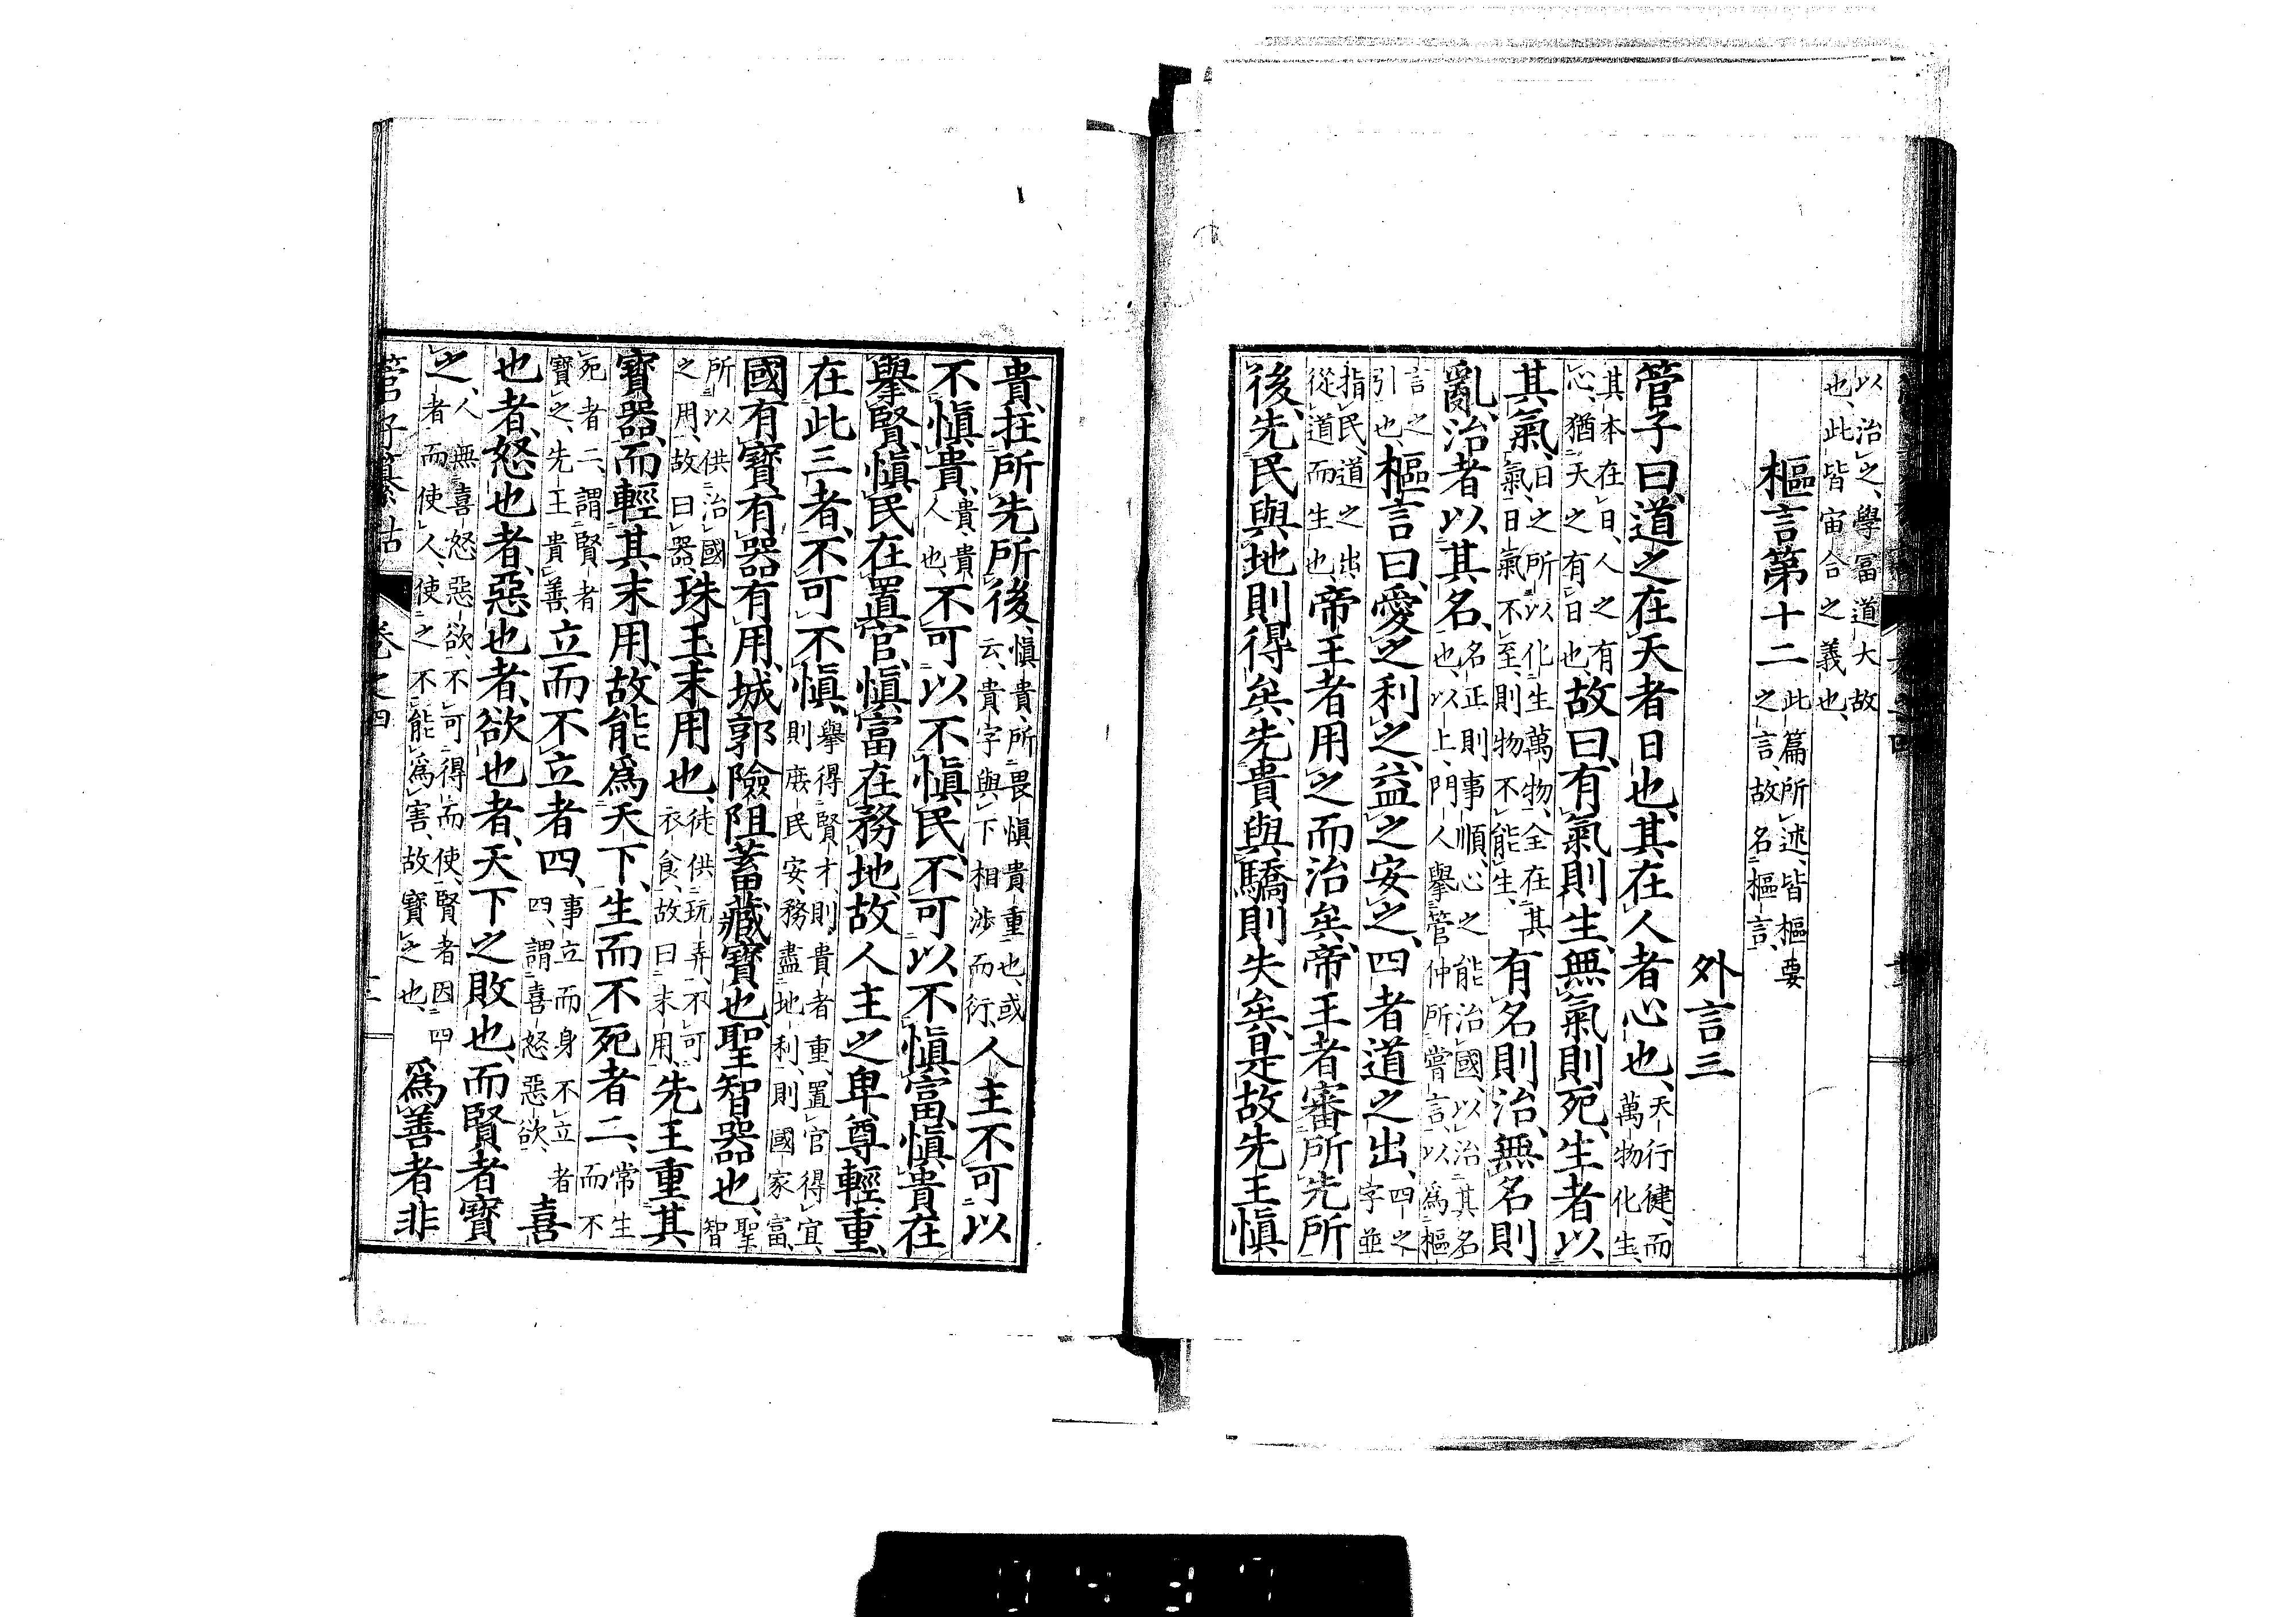 以治之、學冨道大故
也、此皆宙合之義也、
樞言第十二此篇所述、皆樞要之言、故名樞言、
外言三
管子曰、道之在天者日也、其在人者心也、天行健、而萬物化生、
其本在日、人之有心、猶天之有日也、故曰、有氣則生、無氣則死、生者以
其氣、日之所以化生萬物、全在其氣、日氣不至、則物不能生、有名則治、無名則
亂、治者以其名、名正則事順、心之能治國、以治其名也、以上、門人擧管仲所嘗言、以爲樞
言之引也、樞言曰、愛之利之、益之安之、四者道之出、四之字並
指民、道之出、從道而生也、帝王者用之而治矣、帝王者審所先所
後、先民與地則得矣、先貴與驕則失矣、是故先王愼
貴、在所先所後、愼貴、所畏愼貴重也、或云、貴字與下相渉而衍、人主不可以
不愼貴、貴、貴人也、不可以不愼民、不可以不愼富、愼貴在
擧賢、愼民在置官、愼富在務地、故人主之卑尊輕重、
在此三者、不可不愼、擧得賢才、則貴者重、置官得宜、則庶民安、務盡地利、則國家富、
國有寶、有器有用、城郭險阻蓄藏寶也、聖智器也、聖智
所以供治國之用、故曰器、珠玉末用也、徒供玩弄、不可衣食、故曰末用、先王重其
寶器、而輕其末用、故能爲天下、生而不死者二、常生而不
死者二、謂賢者寶之、先王貴善、立而不立者四、事立而身不立者四、謂喜怒惡欲、喜
也者、怒也者、惡也者、欲也者、天下之敗也、而賢者寶
之、人無喜怒惡欲、不可得而使、賢者因四者而使人、使之不能爲害、故寶之也、爲善者非
管子纂詁 卷之四